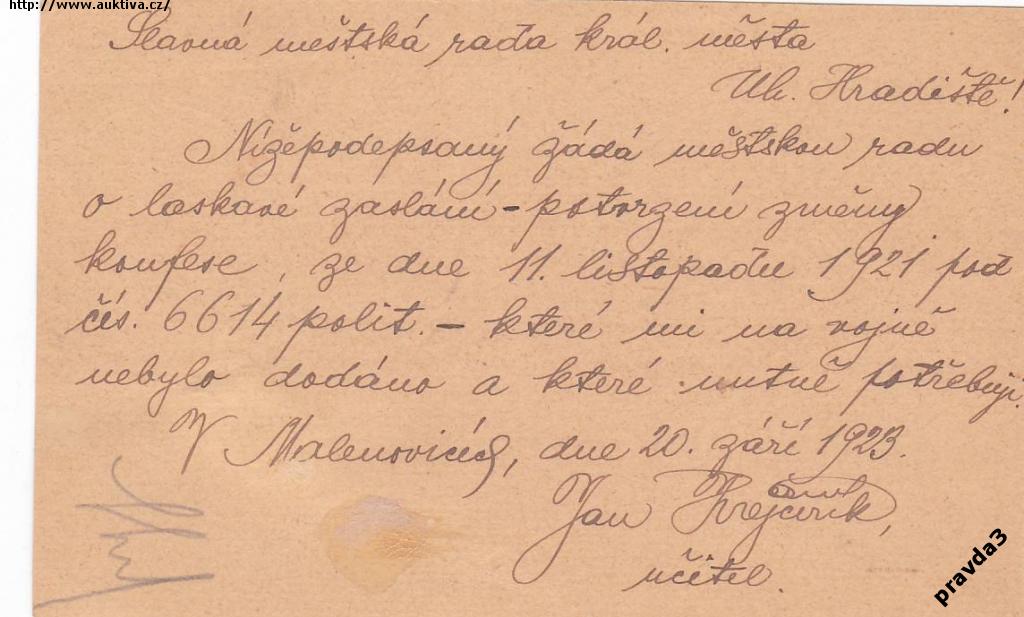 http://www.auktiva.cz/
Slavná městská rada král. města
Uh. Hradiště!
Nížepodepsaný žádá městskou radu
o laskavé zaslání - potvrzení změny
konfese, ze dne 11. listopadu 1921 pod
čís. 6614 polit. - které mi na vojně
nebylo dodáno a které nutně potřebuji.
V Malenovicích, dne 20. září 1923.
Jan
učitel.
pravda3